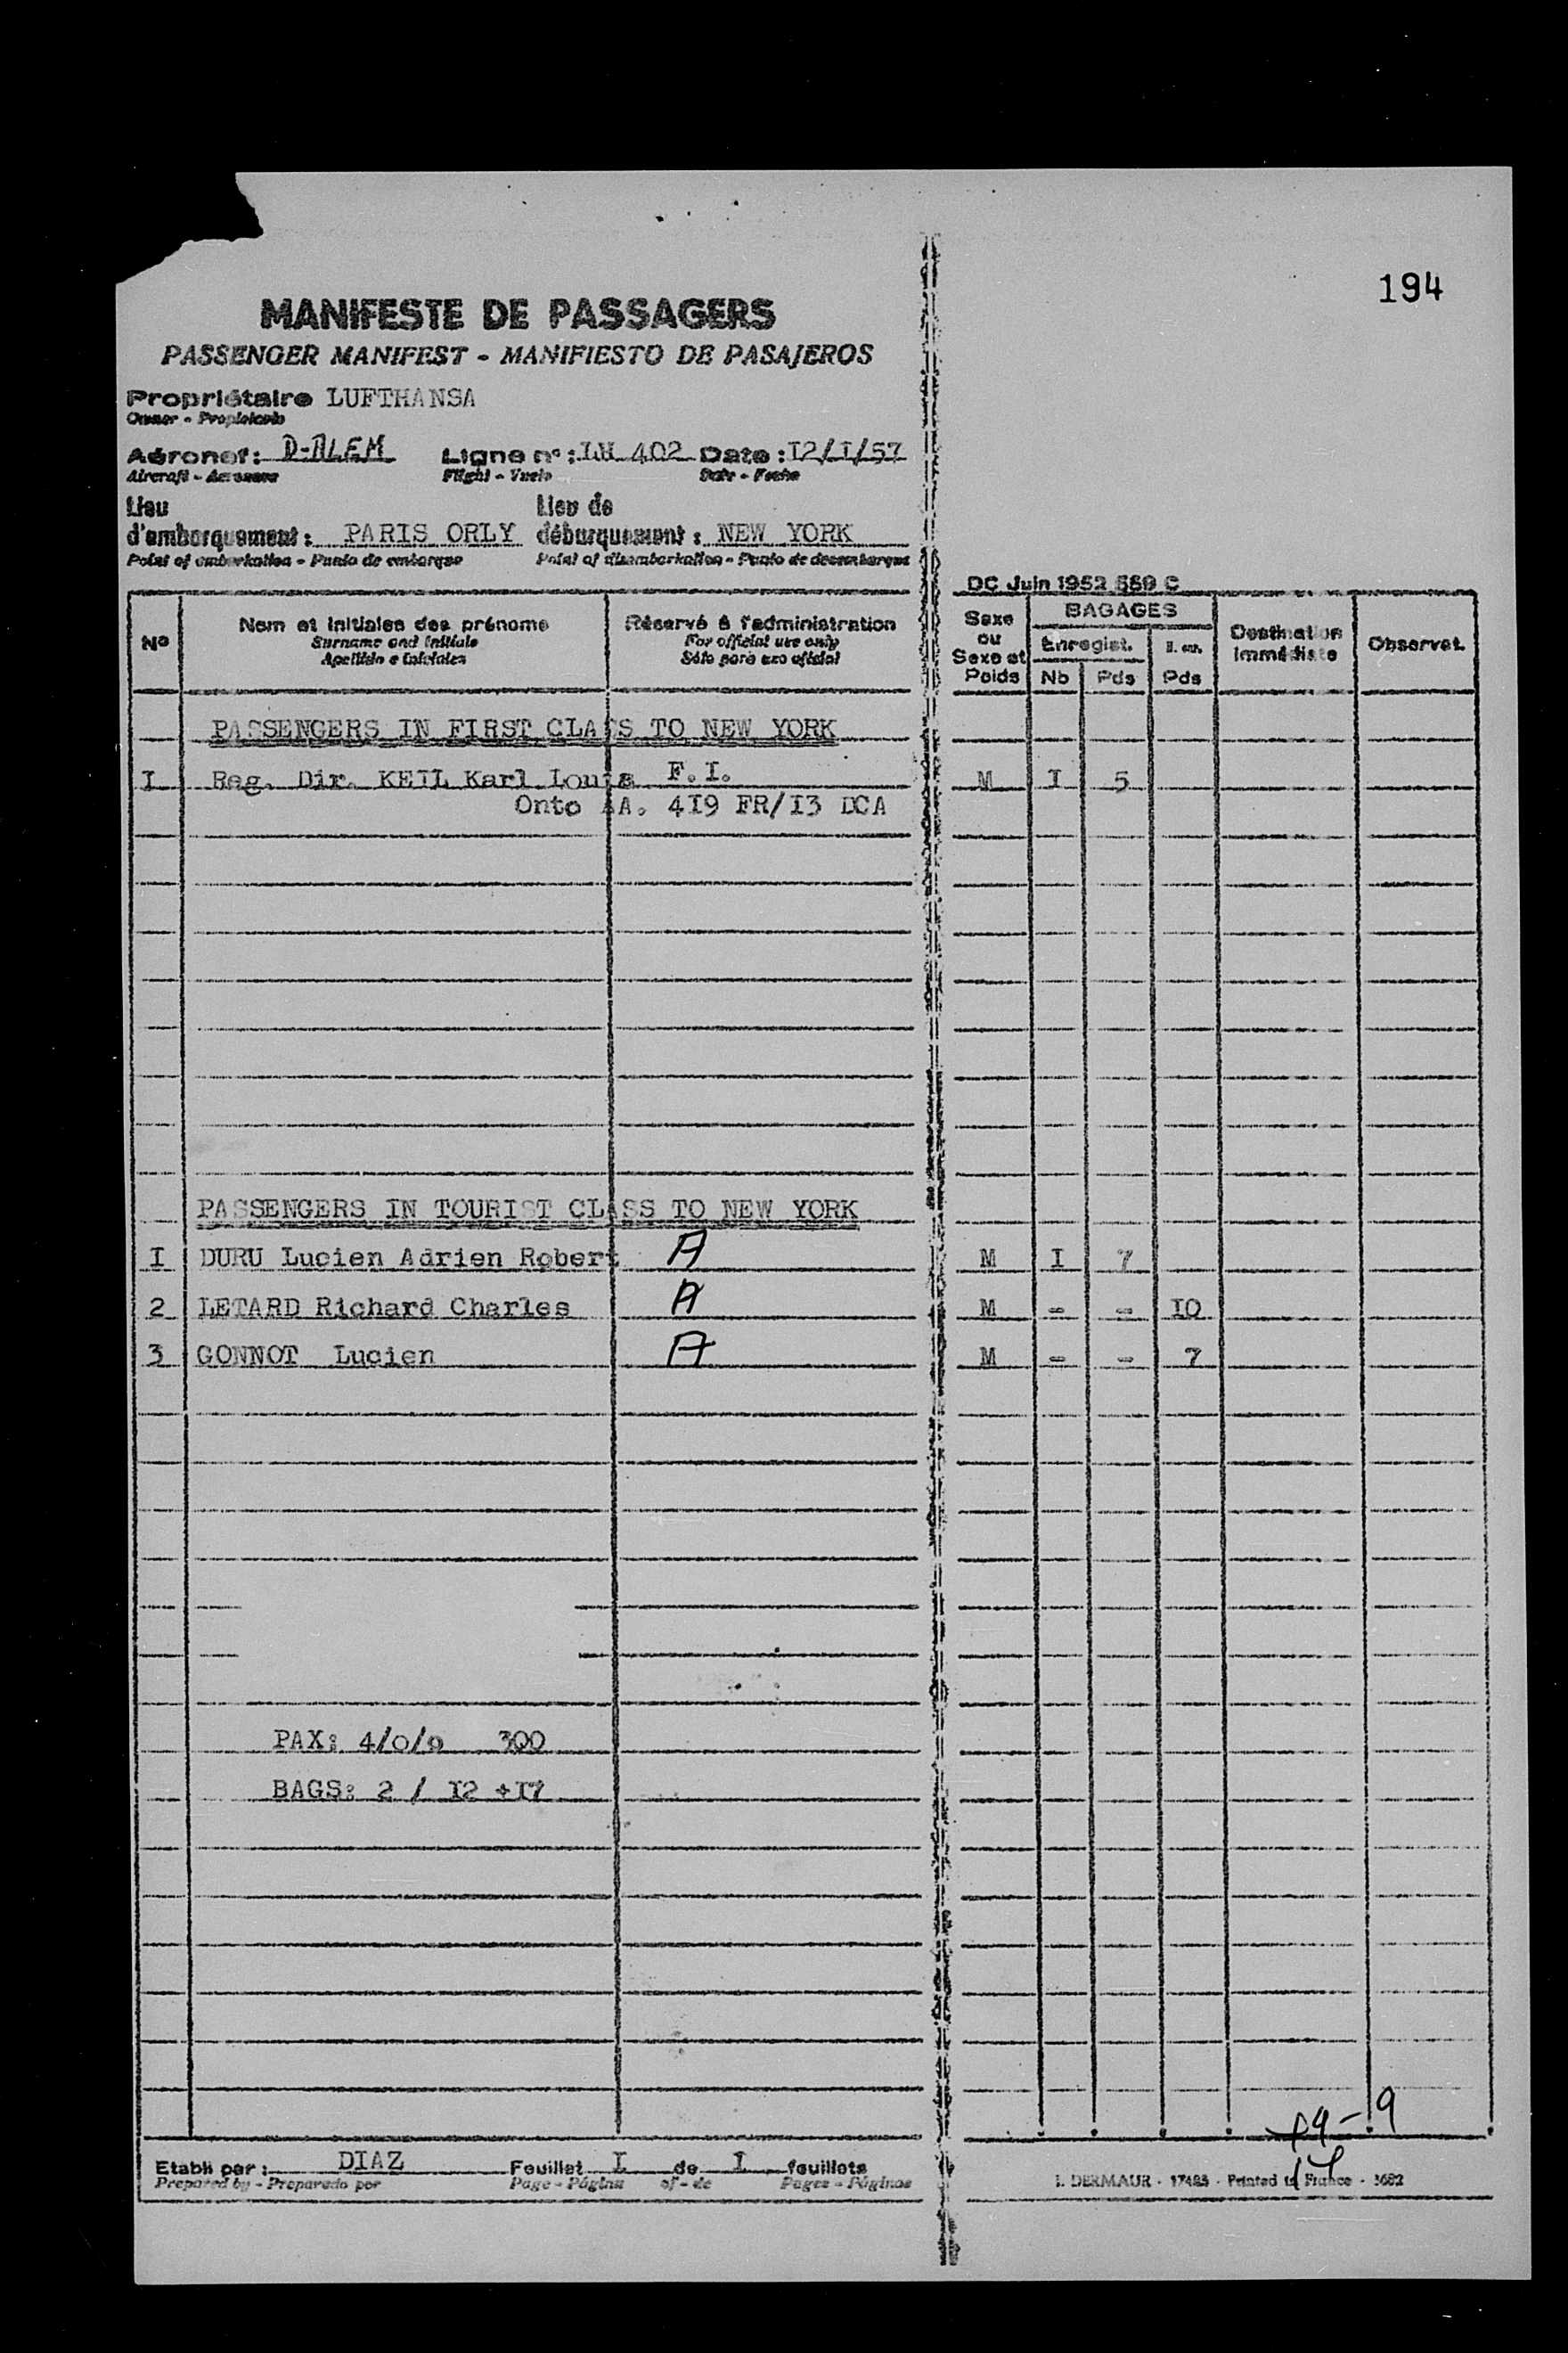 194
MANIFESTE DE PASSAGERS
PASSENGER MANIFEST - MANIFIESTO DE PASAJEROS
Propriétaire LUFTHANSA
Owner - Propietario
Aéronef: D-ALEM Ligne n°: LH 402 Date: I2/I/57
Aircraft - Aeronave Flight - Vuelo Date - Fecha
Lieu Lieu de
d'embarquement: PARIS ORLY débarquement: NEW YORK
Point of embarkation - Punto de embarque Point of disembarkation - Punto de desembarque
DC Juin 1952 559 C
N° Nom et initiales des prénoms Réservé à l'administration Sexe ou Sexe et Poids BAGAGES Destination immédiate Observat.
Surname and initials For official use only Enregist.
Apellido e iniciales Sólo para uso oficial Nb Pds Pds
PASSENGERS IN FIRST CLASS TO NEW YORK
I Reg. Dir. KEIL Karl Louis F.I. M I 5
Onto AA. 4I9 FR/I3 DCA
PASSENGERS IN TOURIST CLASS TO NEW YORK
I DURU Lucien Adrien Robert A M I 7
2 LETARD Richard Charles A M - - IO
3 GONNOT Lucien A M - - 7
PAX: 4/0/0 300
BAGS: 2 / I2 +I7
Etabli par: DIAZ Feuillet I de I feuillets
Prepared by - Preparado por Page - Página of - de Pages - Páginas
I. DERMAUR - 17485 - Printed in France - 1682